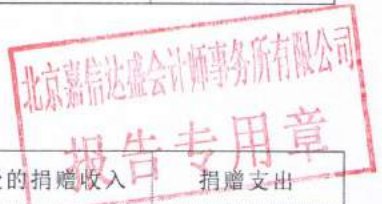 北京嘉信达盛会计师事务所有限公司
报告专用章
的捐赠收入
捐赠支出